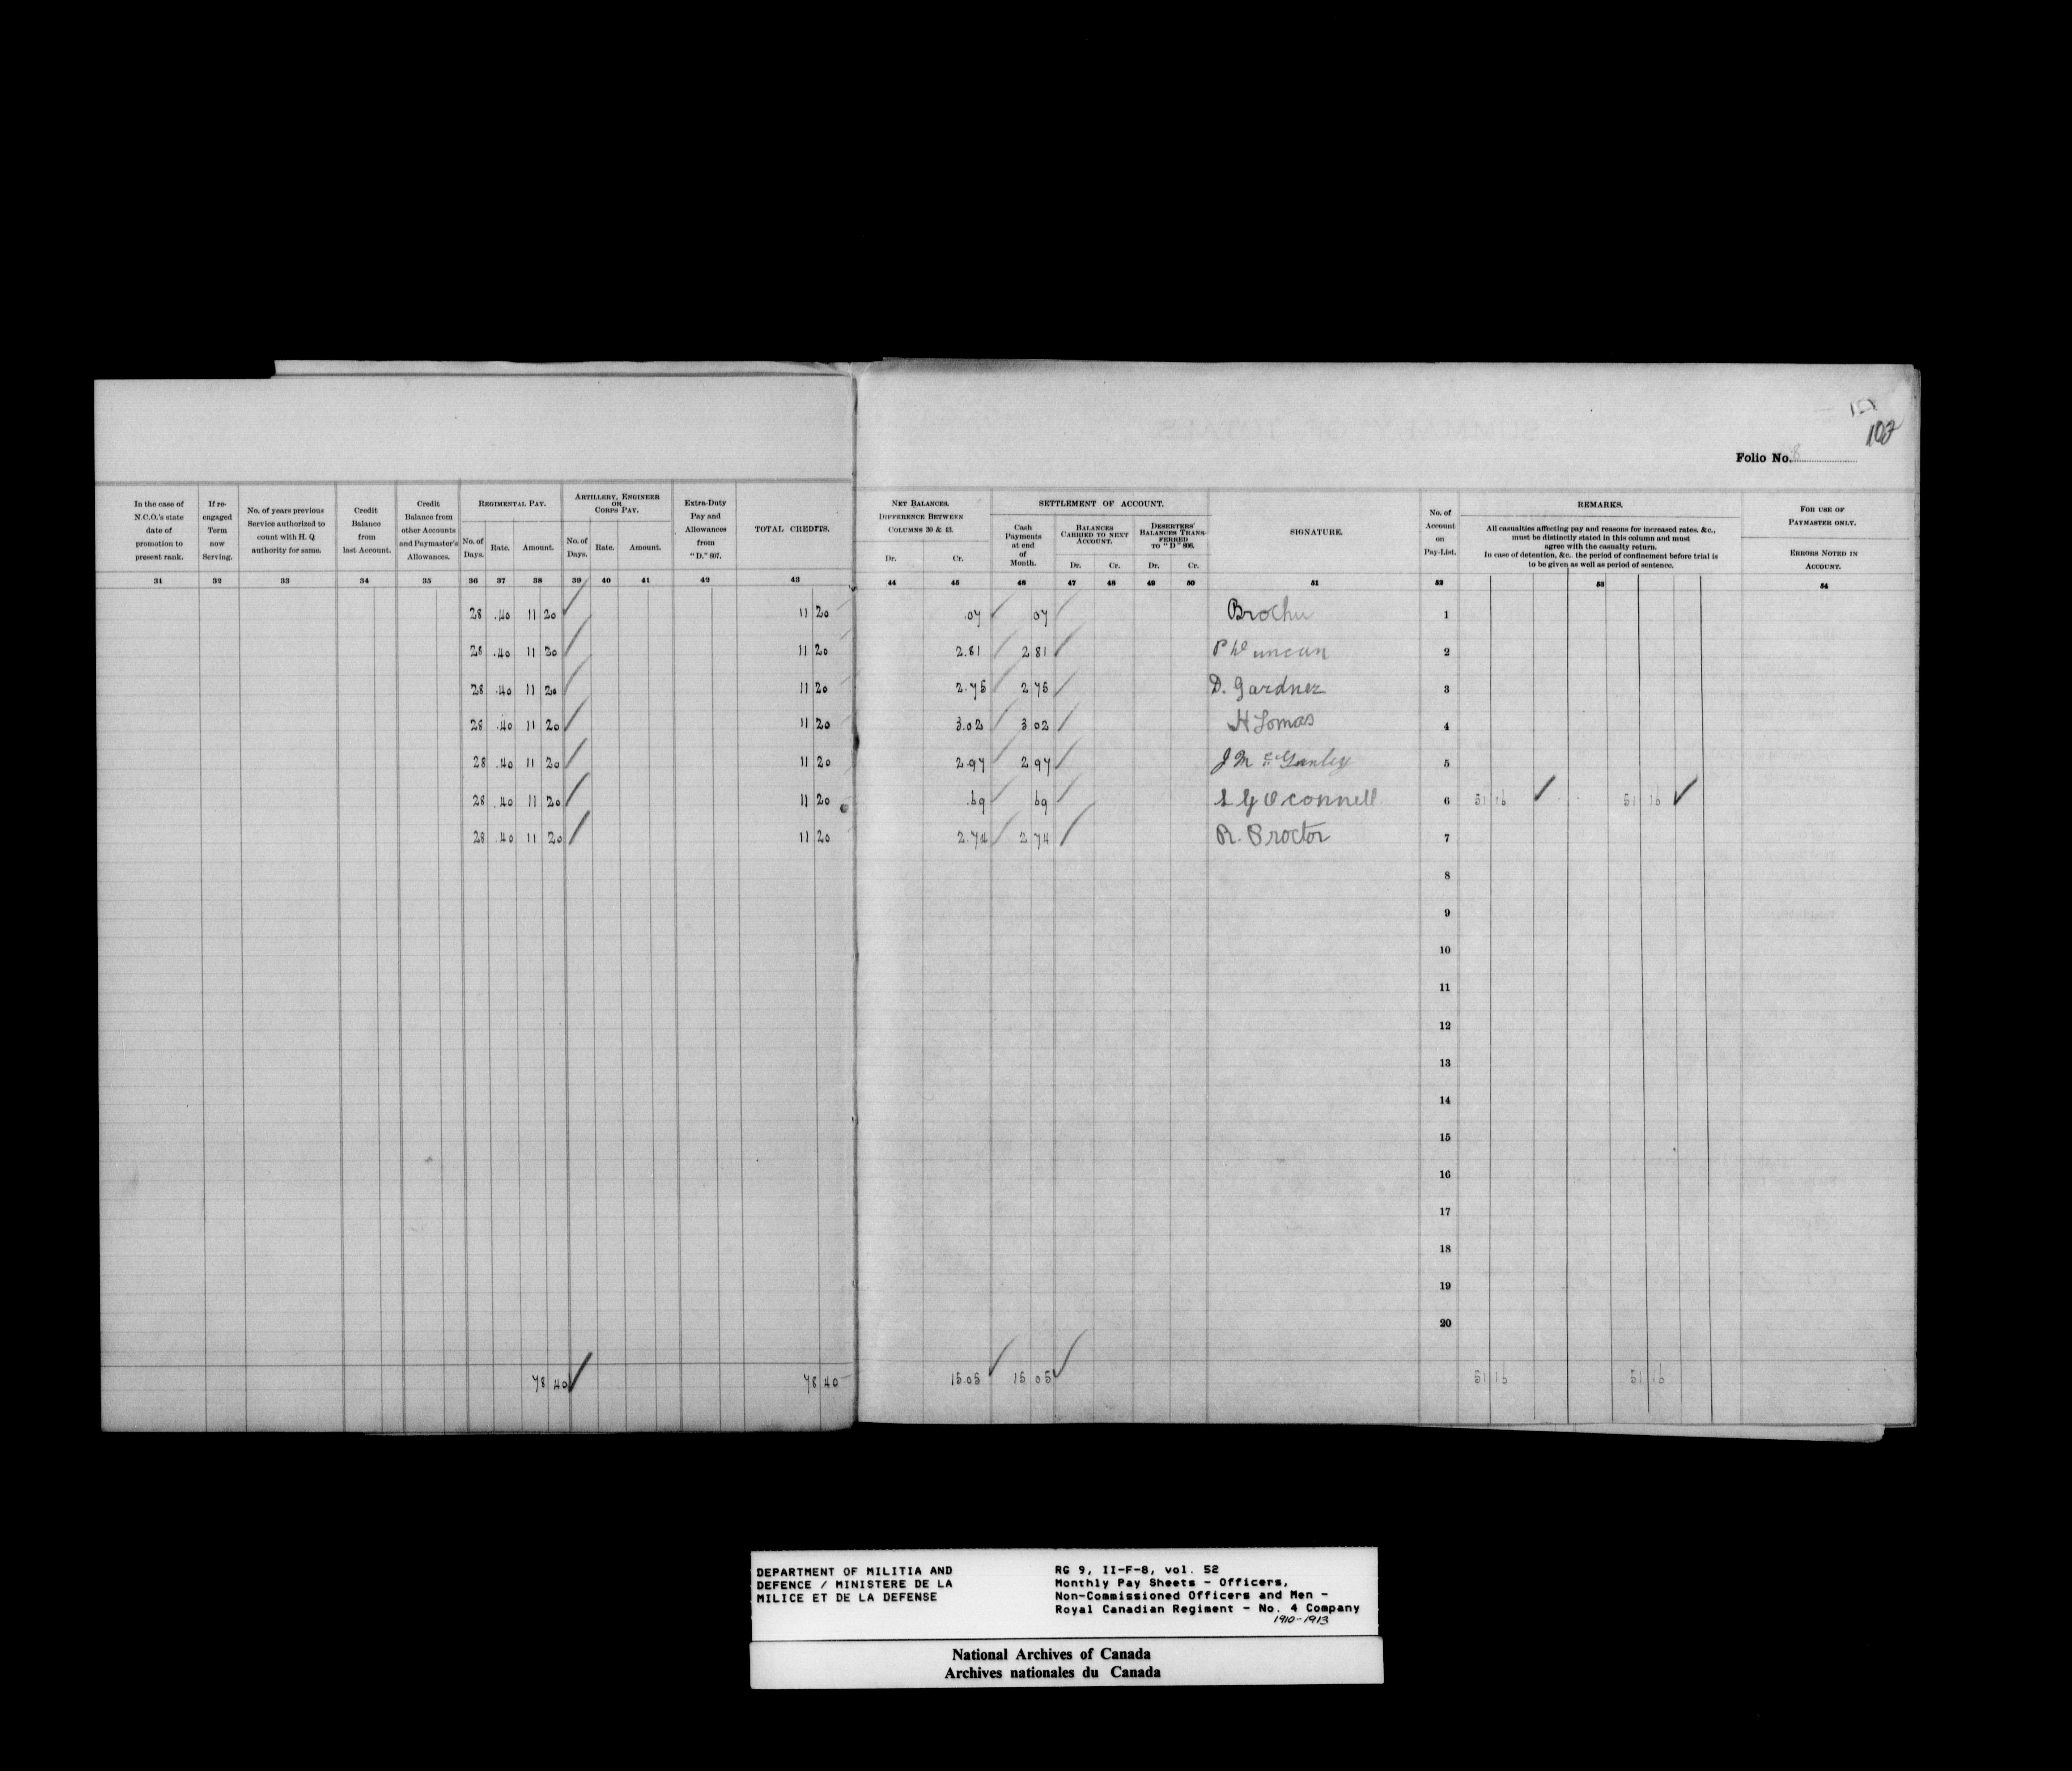 102
Folio No. 8
In the case of N.C.O.'s state date of promotion to present rank.
If re-engaged Term now Serving.
No. of years previous Service authorized to count with H. Q authority for same.
Credit Balance from last Account.
Credit Balance from other Accounts and Paymaster's Allowances.
REGIMENTAL PAY.
No. of Days. Rate. Amount.
ARTILLERY, ENGINEER OR CORPS PAY.
No. of Days. Rate. Amount.
Extra-Duty Pay and Allowances from "D." 807.
TOTAL CREDITS.
NET BALANCES.
DIFFERENCE BETWEEN COLUMNS 30 & 43.
Dr. Cr.
SETTLEMENT OF ACCOUNT.
Cash Payments at end of Month.
BALANCES CARRIED TO NEXT ACCOUNT.
Dr. Cr.
DESERTERS' BALANCES TRANSFERRED TO "D" 806.
Dr. Cr.
SIGNATURE.
No. of Account on Pay-List.
REMARKS.
All casualties affecting pay and reasons for increased rates, &c., must be distinctly stated in this column and must agree with the casualty return.
In case of detention, &c., the period of confinement before trial is to be given as well as period of sentence.
FOR USE OF PAYMASTER ONLY.
ERRORS NOTED IN ACCOUNT.
31 32 33 34 35 36 37 38 39 40 41 42 43 44 45 46 47 48 49 50 51 52 53 54
28 .40 11 20 ✓ 11 20 .07 ✓ 07 Brochu 1
28 .40 11 20 11 20 2.81 2 81 P H Duncan 2
28 .40 11 20 11 20 2.75 2 75 D. Gardner 3
28 .40 11 20 11 20 3.02 3 02 H Lomas 4
28 .40 11 20 11 20 2.97 2 97 J McGanley 5
28 .40 11 20 11 20 .69 69 O'Connell 6 51 16 ✓ 51 16 ✓
28 .40 11 20 11 20 2.74 2 74 R. Proctor 7
8
9
10
11
12
13
14
15
16
17
18
19
20
78 40 ✓ 78 40 15.05 ✓ 15 05 ✓ 51 16 51 16
DEPARTMENT OF MILITIA AND
DEFENCE / MINISTERE DE LA
MILICE ET DE LA DEFENSE
RG 9, II-F-8, vol. 52
Monthly Pay Sheets - Officers,
Non-Commissioned Officers and Men -
Royal Canadian Regiment - No. 4 Company
1910-1913
National Archives of Canada
Archives nationales du Canada